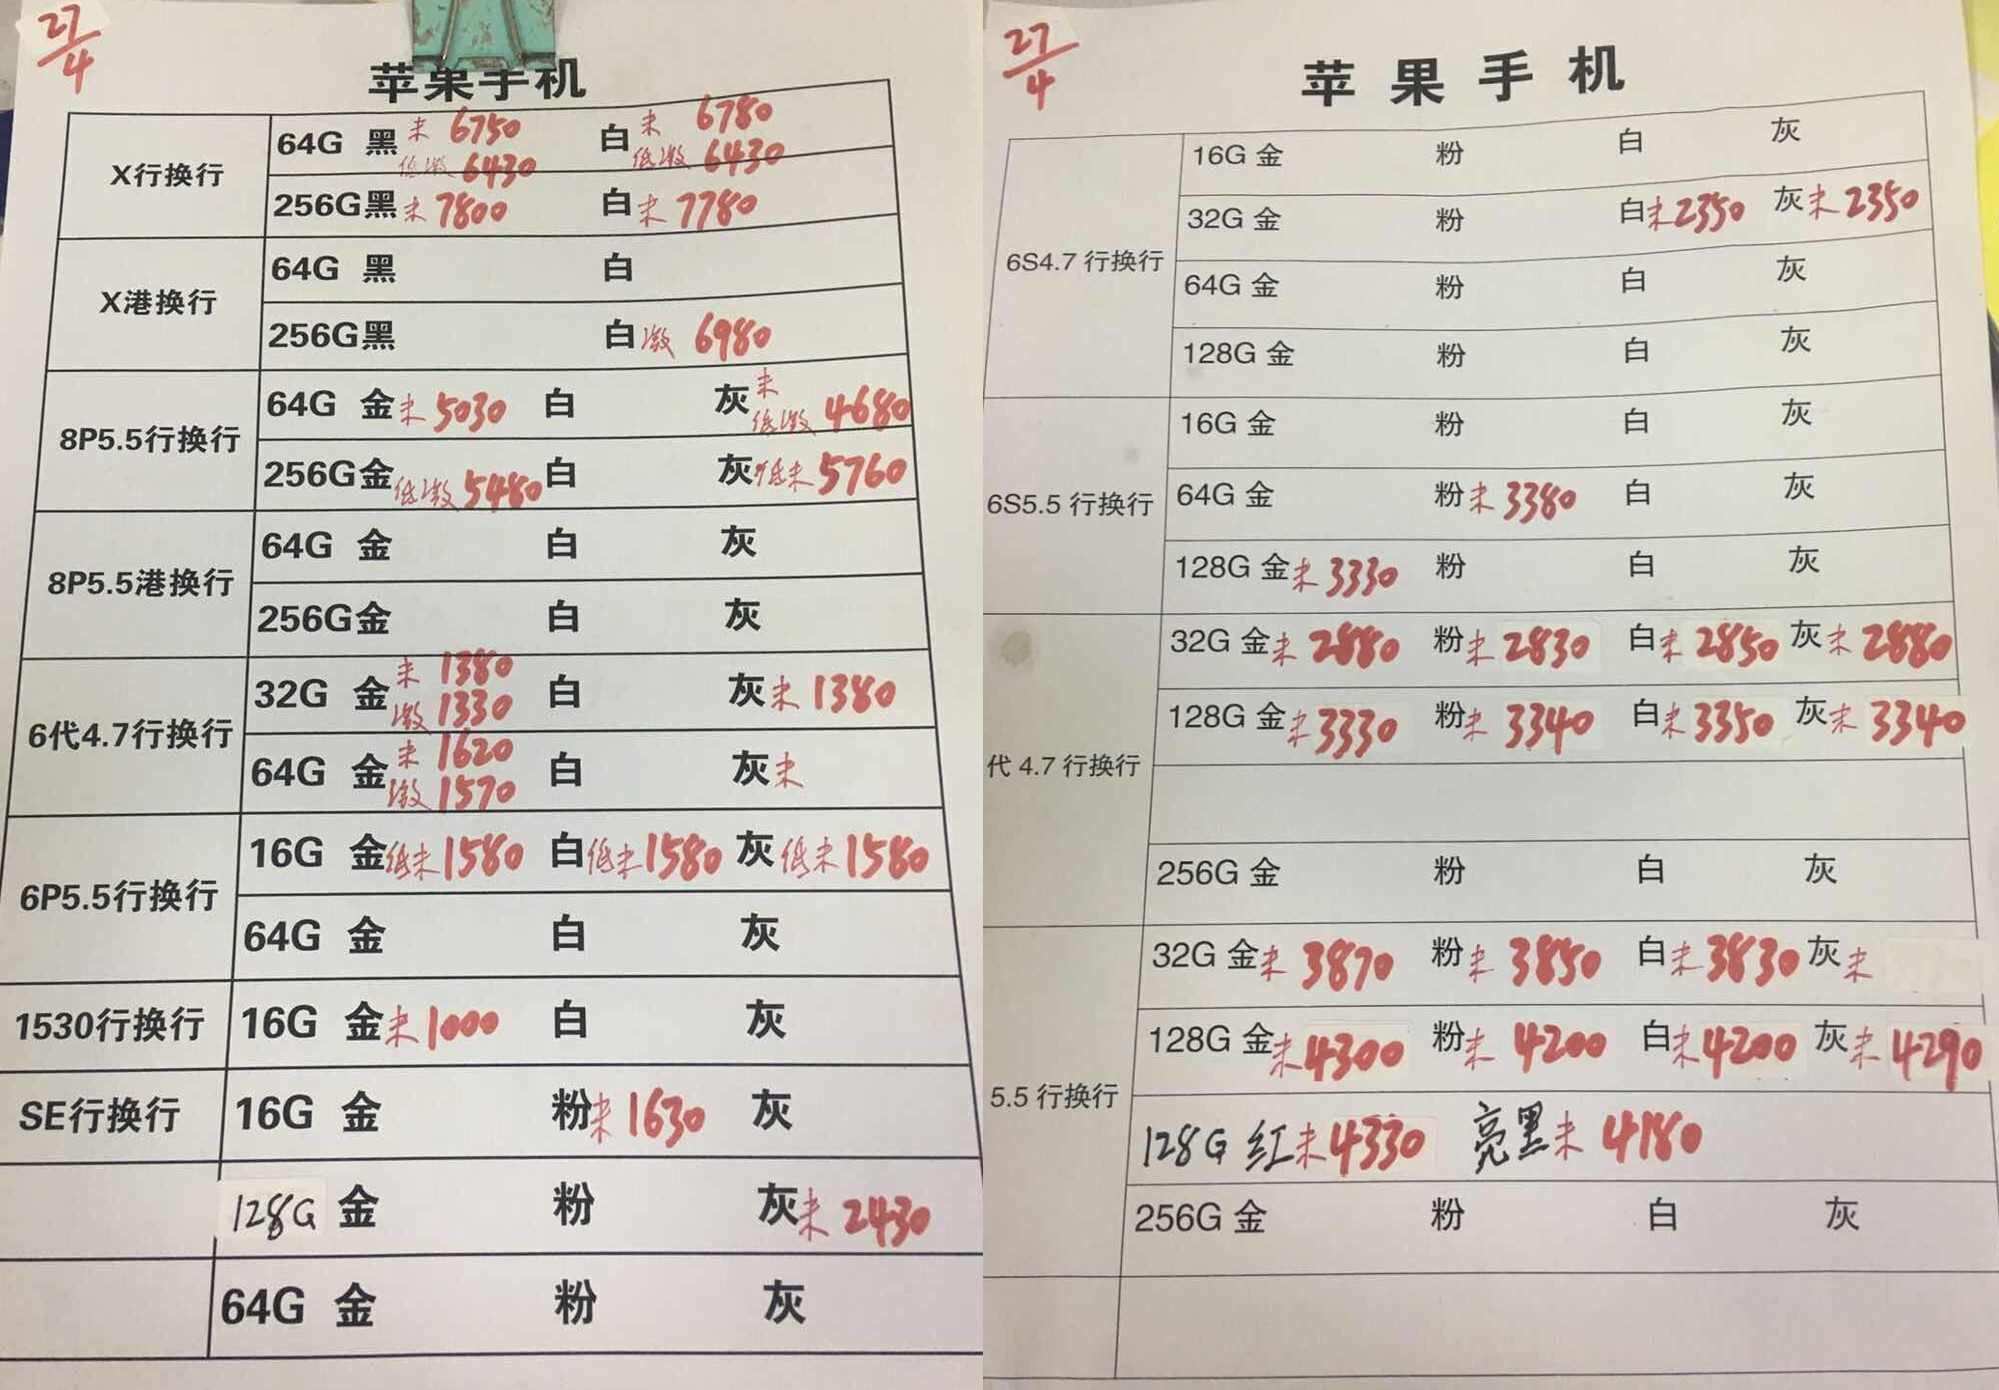 27/4
苹果手机
X行换行
64G 黑 未 6750 白 未 6780
低激 6430 低激 6430
256G黑 未 7800 白 未 7780
X港换行
64G 黑 白
256G黑 白 激 6980
8P5.5行换行
64G 金 未 5030 白 灰 未
低激 4680
256G金 低激 5480 白 灰 低未 5760
8P5.5港换行
64G 金 白 灰
256G金 白 灰
6代4.7行换行
32G 金 未 1380 白 灰 未 1380
激 1330
64G 金 未 1620 白 灰 未
激 1570
6P5.5行换行
16G 金 低未 1580 白 低未 1580 灰 低未 1580
64G 金 白 灰
1530行换行
16G 金 未 1000 白 灰
SE行换行
16G 金 粉 未 1630 灰
128G 金 粉 灰 未 2430
64G 金 粉 灰
27/4
苹果手机
6S4.7 行换行
16G 金 粉 白 灰
32G 金 粉 白 未 2350 灰 未 2350
64G 金 粉 白 灰
128G 金 粉 白 灰
6S5.5 行换行
16G 金 粉 白 灰
64G 金 粉 未 3380 白 灰
128G 金 未 3330 粉 白 灰
代 4.7 行换行
32G 金 未 2880 粉 未 2830 白 未 2850 灰 未 2880
128G 金 未 3330 粉 未 3340 白 未 3350 灰 未 3340
256G 金 粉 白 灰
5.5 行换行
32G 金 未 3870 粉 未 3850 白 未 3830 灰 未
128G 金 未 4300 粉 未 4200 白 未 4200 灰 未 4290
128G 红 未 4330 亮黑 未 4180
256G 金 粉 白 灰